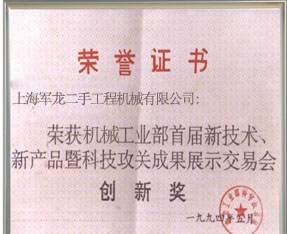 荣誉证书
上海军龙二手工程机械有限公司:
荣获机械工业部首届新技术、
新产品暨科技攻关成果展示交易会
创新奖
一九九四年五月